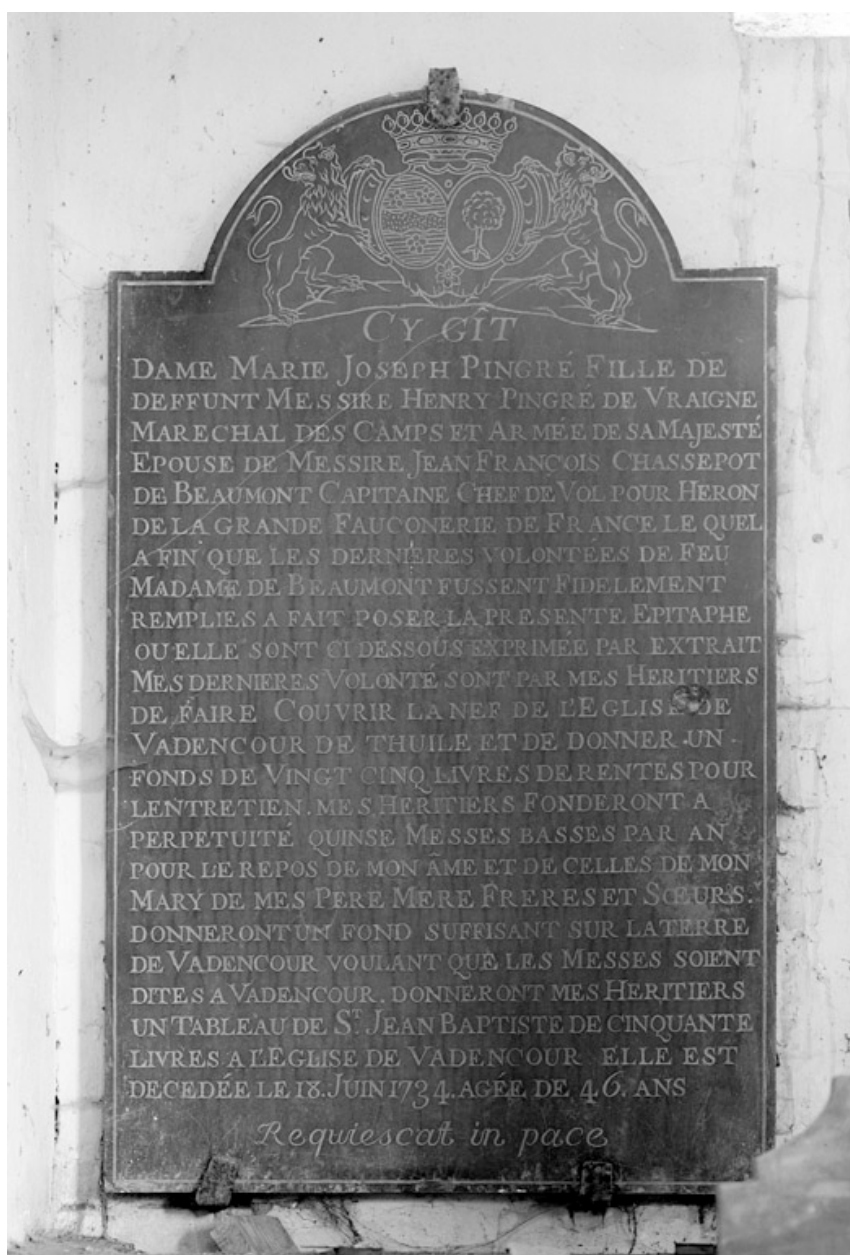 CY GÎT
DAME MARIE JOSEPH PINGRÉ FILLE DE
DEFFUNT MESSIRE HENRY PINGRÉ DE VRAIGNE
MARECHAL DES CAMPS ET ARMÉE DE SA MAJESTÉ
EPOUSE DE MESSIRE JEAN FRANÇOIS CHASSEPOT
DE BEAUMONT CAPITAINE CHEF DE VOL POUR HERON
DE LA GRANDE FAUCONERIE DE FRANCE LE QUEL
A FIN QUE LES DERNIÈRES VOLONTÉES DE FEU
MADAME DE BEAUMONT FUSSENT FIDELEMENT
REMPLIES A FAIT POSER LA PRESENTE EPITAPHE
OU ELLE SONT CI DESSOUS EXPRIMÉE PAR EXTRAIT
MES DERNIERES VOLONTÉ SONT PAR MES HERITIERS
DE FAIRE COUVRIR LA NEF DE L'EGLISE DE
VADENCOUR DE THUILE ET DE DONNER UN
FONDS DE VINGT CINQ LIVRES DE RENTES POUR
LENTRETIEN. MES HERITIERS FONDERONT A
PERPETUITÉ QUINSE MESSES BASSES PAR AN
POUR LE REPOS DE MON ÂME ET DE CELLES DE MON
MARY DE MES PERE MERE FRERES ET SŒURS.
DONNERONT UN FOND SUFFISANT SUR LA TERRE
DE VADENCOUR VOULANT QUE LES MESSES SOIENT
DITES A VADENCOUR. DONNERONT MES HERITIERS
UN TABLEAU DE ST. JEAN BAPTISTE DE CINQUANTE
LIVRES A L'EGLISE DE VADENCOUR ELLE EST
DECEDÉE LE 18. JUIN 1734. AGÉE DE 46. ANS
Requiescat in pace